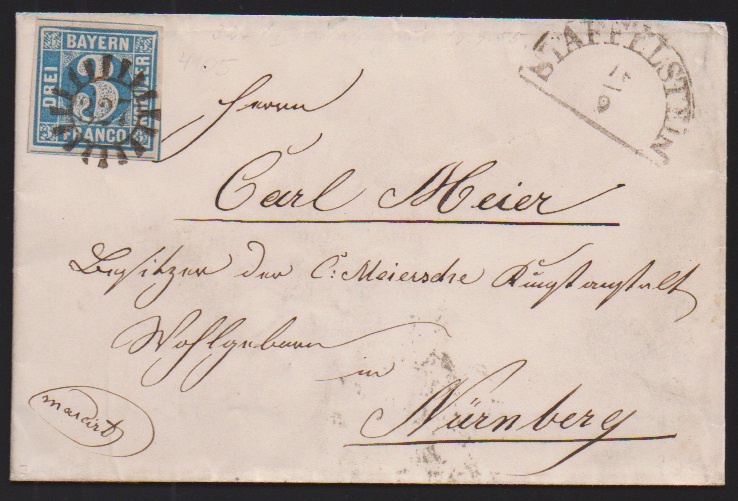 BAYERN
DREI 3 KREUZER
FRANCO
STAFFELSTEIN
Herrn
Carl Meier
Besitzer der C: Meiersche Kunstanstalt
Wohlgeborn
in
Nürnberg